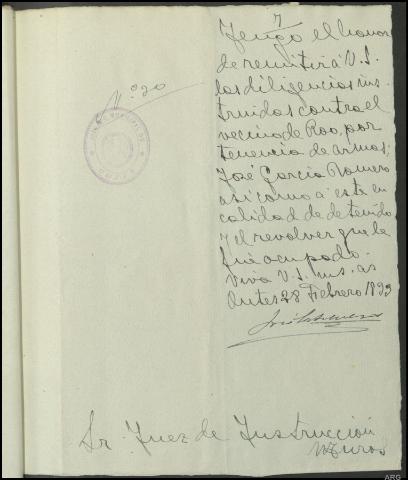 7
Tengo el honor
de remitir a V.S.
las diligencias ins
truidas contra el
vecino de Roo, por
tenencia de armas,
José García Romero
así como a este en
calidad de detenido
y el revolver que le
fué ocupado.
Viva V.S. ms. as
Outes 28 Febrero 1933
Nº 20
Sr. Juez de Instrucción
Muros
ARG